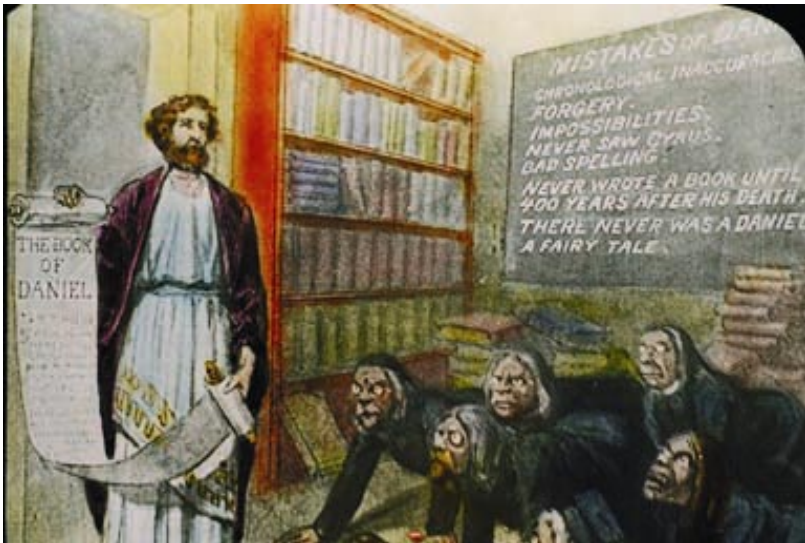 THE BOOK
OF
DANIEL
MISTAKES OF
CHRONOLOGICAL INACCURACIES
FORGERY.
IMPOSSIBILITIES.
NEVER SAW CYRUS.
BAD SPELLING.
NEVER WROTE A BOOK UNTIL
400 YEARS AFTER HIS DEATH
THERE NEVER WAS A DANIEL
A FAIRY TALE.